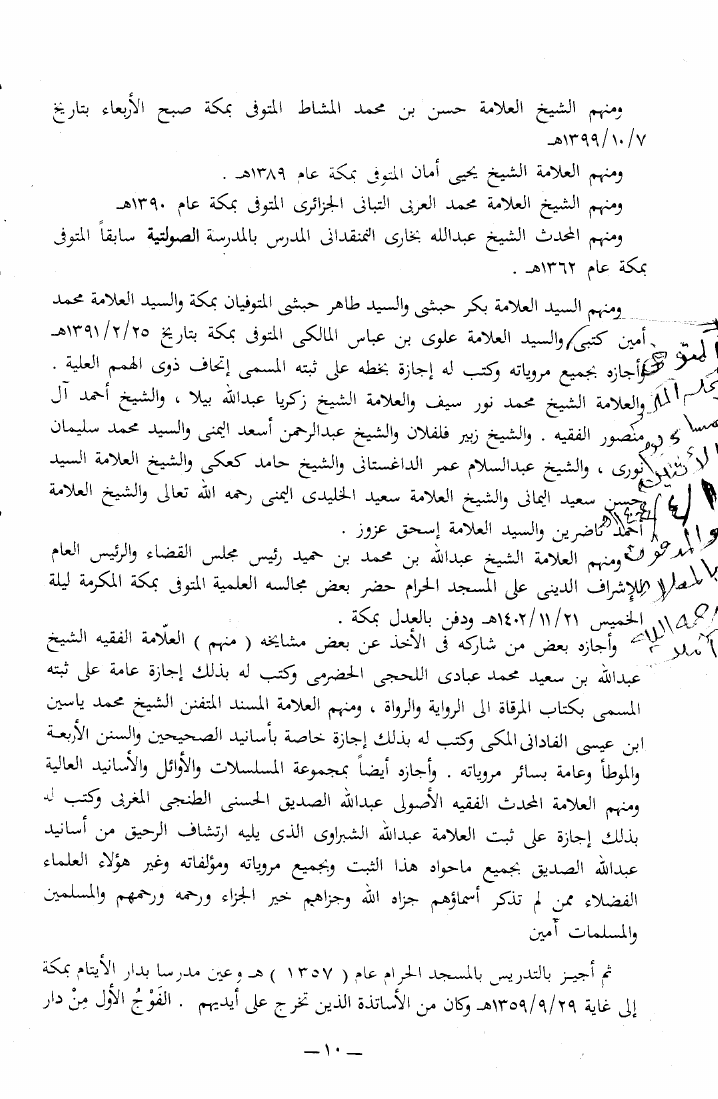 ومنهم الشيخ العلامة حسن بن محمد المشاط المتوفى بمكة صبح الأربعاء بتاريخ
١٣٩٩/١٠/٧هـ
ومنهم العلامة الشيخ يحيى أمان المتوفى بمكة عام ١٣٨٩هـ .
ومنهم الشيخ العلامة محمد العربى التبانى الجزائرى المتوفى بمكة عام ١٣٩٠هـ
ومنهم المحدث الشيخ عبدالله بخارى التمنقدانى المدرس بالمدرسة الصولتية سابقاً المتوفى
بمكة عام ١٣٦٢هـ .
ومنهم السيد العلامة بكر حبشى والسيد طاهر حبشى المتوفيان بمكة والسيد العلامة محمد
أمين كتبى والسيد العلامة علوى بن عباس المالكى المتوفى بمكة بتاريخ ١٣٩١/٢/٢٥هـ
وأجازه بجميع مروياته وكتب له إجازة بخطه على ثبته المسمى إتحاف ذوى الهمم العلية .
والعلامة الشيخ محمد نور سيف والعلامة الشيخ زكريا عبدالله بيلا ، والشيخ أحمد آل
منصور الفقيه . والشيخ زبير فلفلان والشيخ عبدالرحمن أسعد اليمنى والسيد محمد سليمان
نورى ، والشيخ عبدالسلام عمر الداغستانى والشيخ حامد كعكى والشيخ العلامة السيد
حسن سعيد اليمانى والشيخ العلامة سعيد الخليدى اليمنى رحمه الله تعالى والشيخ العلامة
أحمد ناضرين والسيد العلامة إسحق عزوز .
ومنهم العلامة الشيخ عبدالله بن محمد بن حميد رئيس مجلس القضاء والرئيس العام
للإشراف الدينى على المسجد الحرام حضر بعض مجالسه العلمية المتوفى بمكة المكرمة ليلة
الخميس ١٤٠٢/١١/٢١هـ ودفن بالعدل بمكة .
وأجازه بعض من شاركه فى الأخذ عن بعض مشايخه ( منهم ) العلّامة الفقيه الشيخ
عبدالله بن سعيد محمد عبادى اللحجى الحضرمى وكتب له بذلك إجازة عامة على ثبته
المسمى بكتاب المرقاة الى الرواية والرواة ، ومنهم العلامة المسند المتفنن الشيخ محمد ياسين
ابن عيسى الفادانى المكى وكتب له بذلك إجازة خاصة بأسانيد الصحيحين والسنن الأربعة
والموطأ وعامة بسائر مروياته . وأجازه أيضاً بمجموعة المسلسلات والأوائل والأسانيد العالية
ومنهم العلامة المحدث الفقيه الأصولى عبدالله الصديق الحسنى الطنجى المغربى وكتب له
بذلك إجازة على ثبت العلامة عبدالله الشبراوى الذى يليه ارتشاف الرحيق من أسانيد
عبدالله الصديق بجميع ماحواه هذا الثبت وبجميع مروياته ومؤلفاته وغير هؤلاء العلماء
الفضلاء ممن لم تذكر أسماؤهم جزاه الله وجزاهم خير الجزاء ورحمه ورحمهم والمسلمين
والمسلمات آمين
ثم أجيز بالتدريس بالمسجد الحرام عام ( ١٣٥٧ ) هـ وعين مدرسا بدار الأيتام بمكة
إلى غاية ١٣٥٩/٩/٢٩هـ وكان من الأساتذة الذين تخرج على أيديهم . الفَوْجُ الأول مِنْ دار
— ١٠ —
المتوفى
مساء يوم
الأثنين
رحمه الله